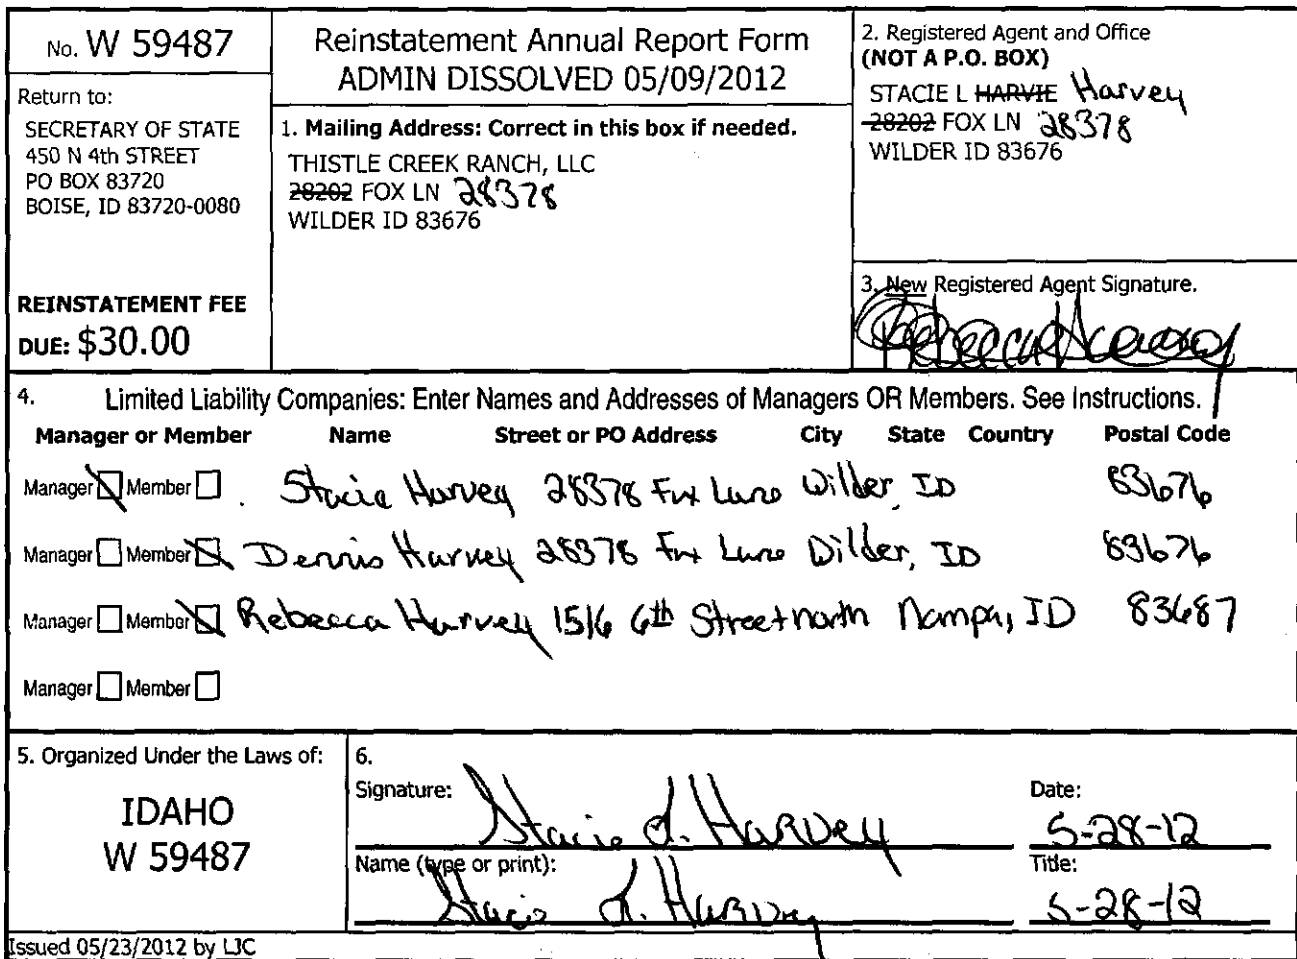 No. W 59487
Return to:
SECRETARY OF STATE
450 N 4th STREET
PO BOX 83720
BOISE, ID 83720-0080
REINSTATEMENT FEE
DUE: $30.00
Reinstatement Annual Report Form
ADMIN DISSOLVED 05/09/2012
1. Mailing Address: Correct in this box if needed.
THISTLE CREEK RANCH, LLC
28202 FOX LN 28378
WILDER ID 83676
2. Registered Agent and Office
(NOT A P.O. BOX)
STACIE L HARVIE Harvey
28202 FOX LN 28378
WILDER ID 83676
3. New Registered Agent Signature.
Rebecca Harvey
4. Limited Liability Companies: Enter Names and Addresses of Managers OR Members. See Instructions.
Manager or Member Name Street or PO Address City State Country Postal Code
Manager Member Stacie Harvey 28378 Fox Lane Wilder, ID 83676
Manager Member Dennis Harvey 28378 Fox Lane Wilder, ID 83676
Manager Member Rebecca Harvey 1516 6th Street north Nampa, ID 83687
Manager Member
5. Organized Under the Laws of:
IDAHO
W 59487
6.
Signature: Stacie L. Harvey
Date: 5-28-12
Name (type or print): Stacie L. Harvey
Title: 5-28-12
Issued 05/23/2012 by LJC